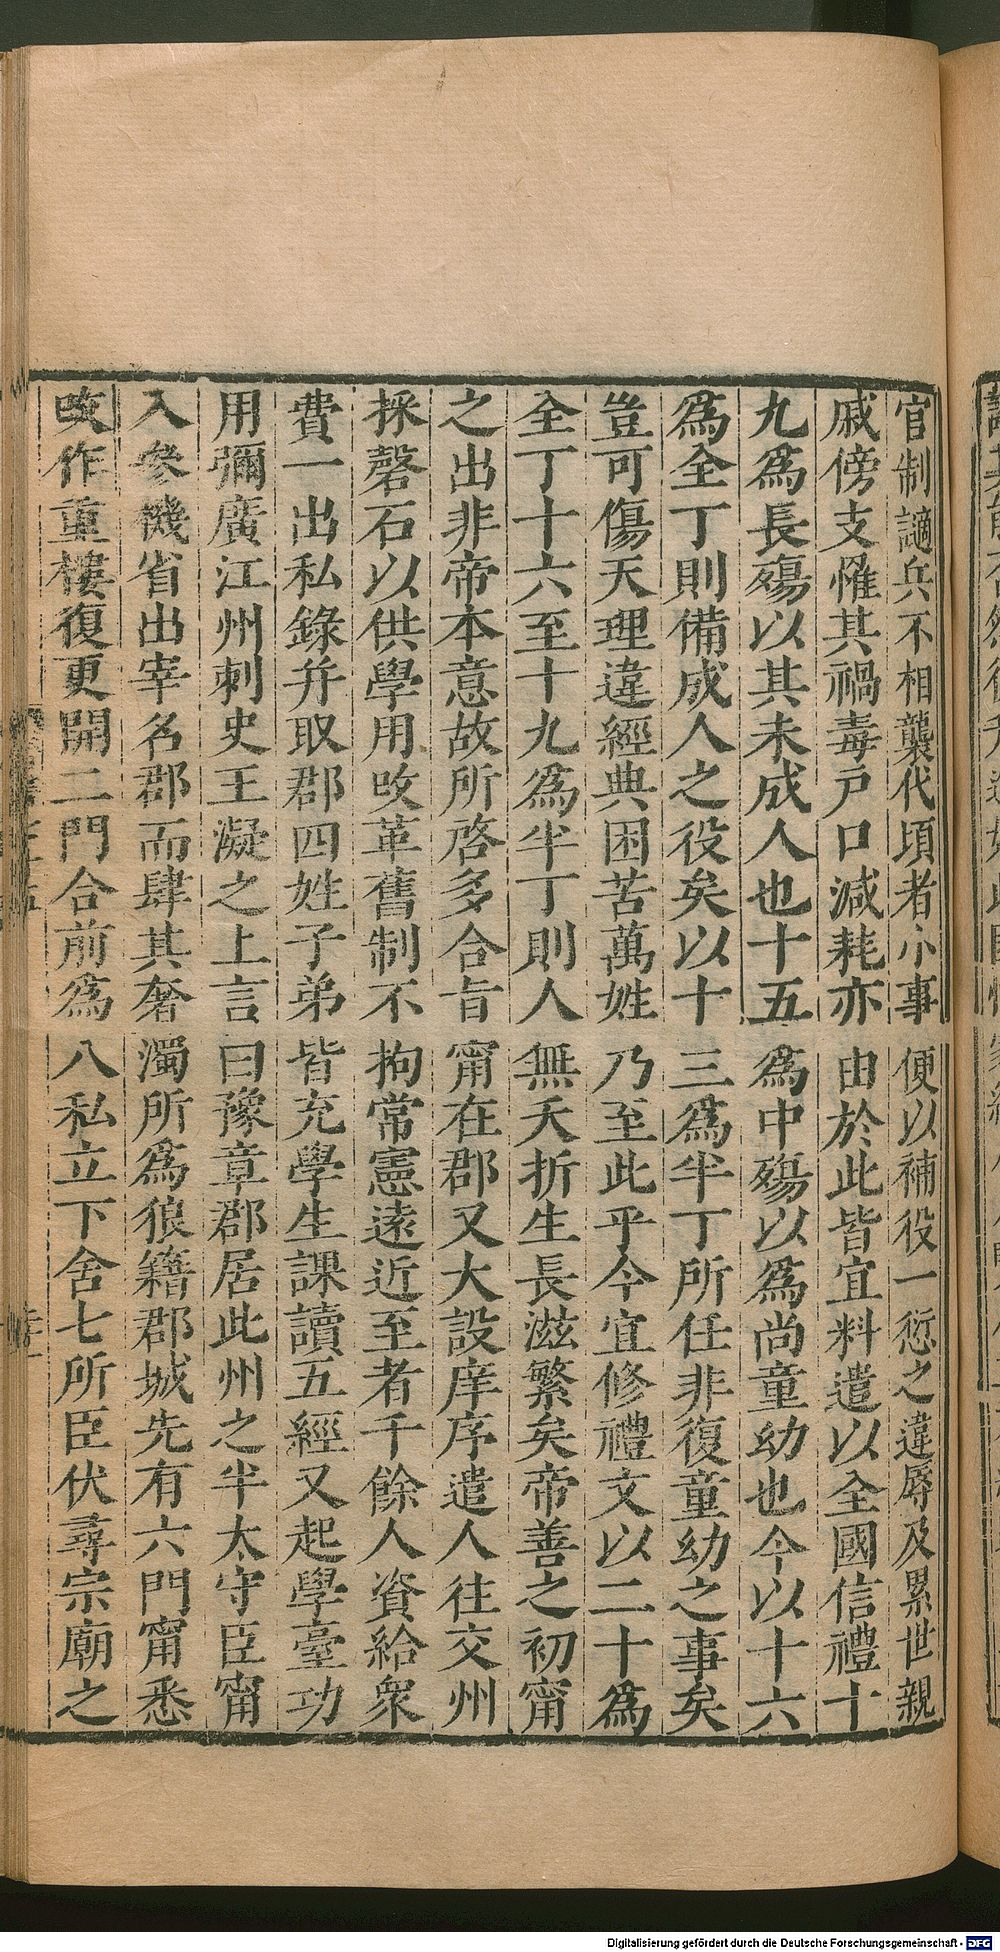 官制讁兵不相襲代頃者小事便以補役一愆之違辱及累世親
戚傍支罹其禍毒戸口減耗亦由於此皆宜料遣以全國信禮十
九爲長殤以其未成人也十五爲中殤以爲尚童幼也今以十六
爲全丁則備成人之役矣以十三爲半丁所任非復童幼之事矣
豈可傷天理違經典困苦萬姓乃至此乎今宜修禮文以二十爲
全丁十六至十九爲半丁則人無夭折生長滋繁矣帝善之初甯
之出非帝本意故所啓多合旨甯在郡又大設庠序遣人往交州
採磬石以供學用攺革舊制不拘常憲遠近至者千餘人資給衆
費一出私錄并取郡四姓子弟皆充學生課讀五經又起學臺功
用彌廣江州刺史王凝之上言曰豫章郡居此州之半太守臣甯
入參機省出宰名郡而肆其奢濁所爲狼籍郡城先有六門甯悉
攺作重樓復更開二門合前爲八私立下舍七所臣伏尋宗廟之
Digitalisierung gefördert durch die Deutsche Forschungsgemeinschaft - DFG